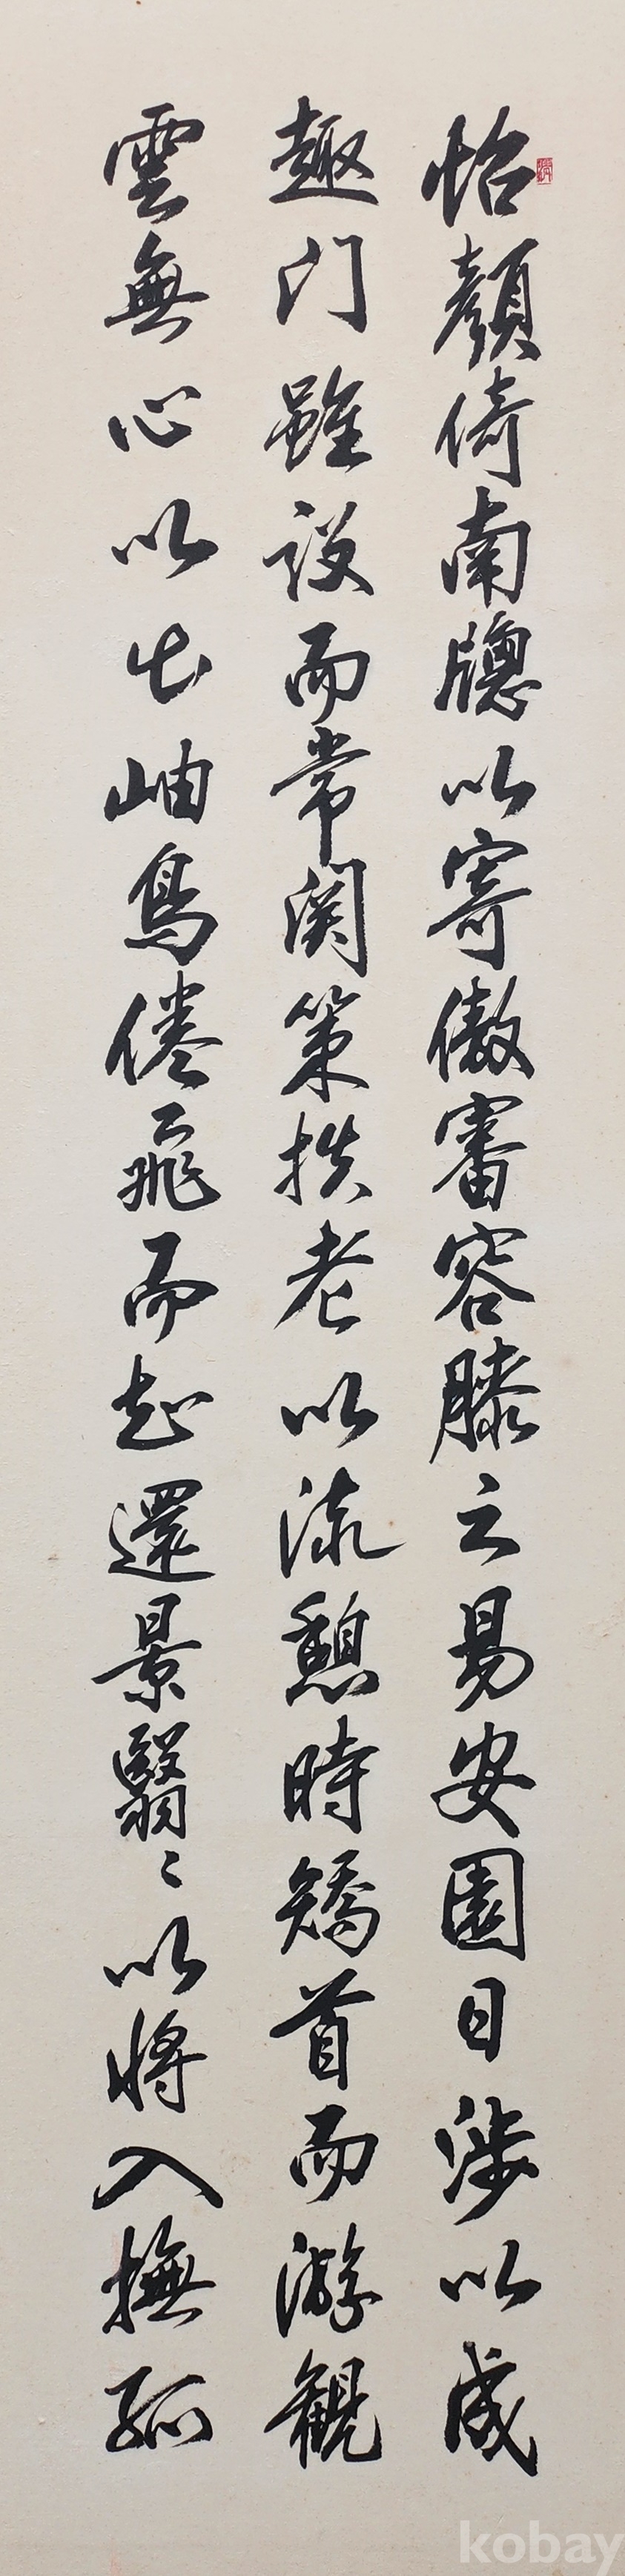 怡顔倚南牕以寄傲審容膝之易安園日涉以成
趣门雖設而常関策扶老以流憩時矯首而游觀
雲無心以出岫鳥倦飛而知還景翳〻以將入撫孤
kobay